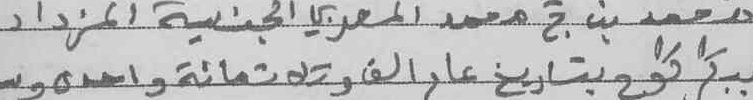 محمد بن ج محمد المغربي الجنسية المزداد
بتاريخ عام الف وثلاثمائة واحدى و